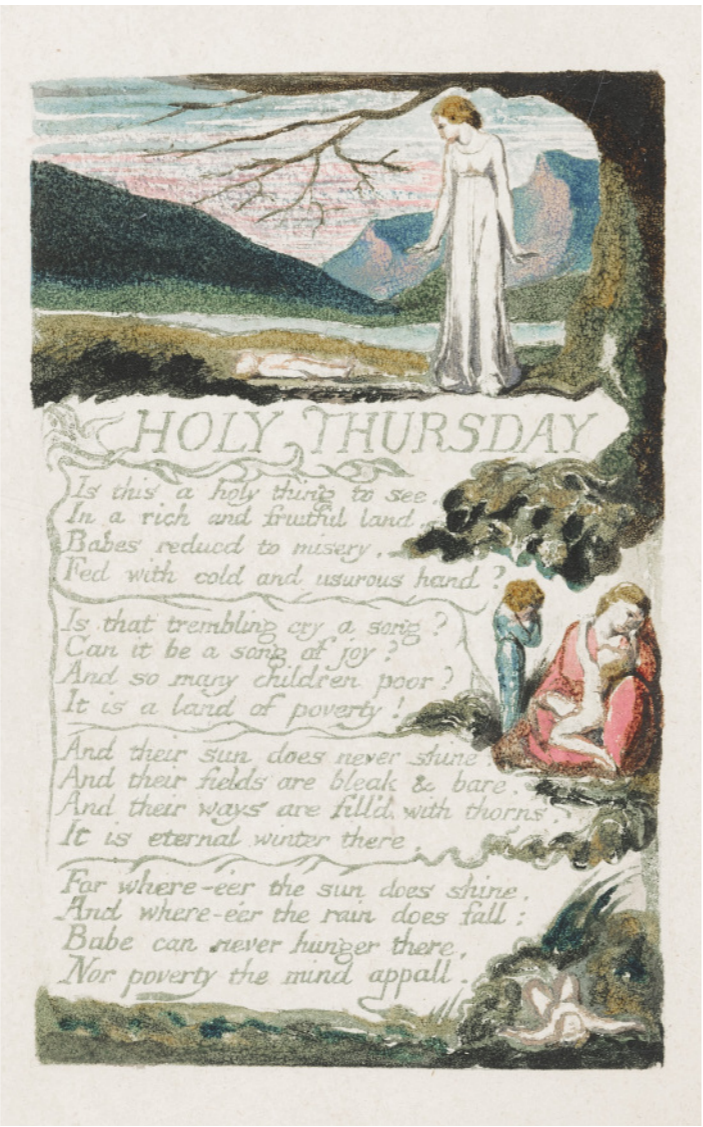 HOLY THURSDAY
Is this a holy thing to see,
In a rich and fruitful land,
Babes reducd to misery,
Fed with cold and usurous hand?
Is that trembling cry a song?
Can it be a song of joy?
And so many children poor?
It is a land of poverty!
And their sun does never shine
And their fields are bleak & bare.
And their ways are fill'd with thorns.
It is eternal winter there.
For where-e'er the sun does shine,
And where-e'er the rain does fall:
Babe can never hunger there,
Nor poverty the mind appall.